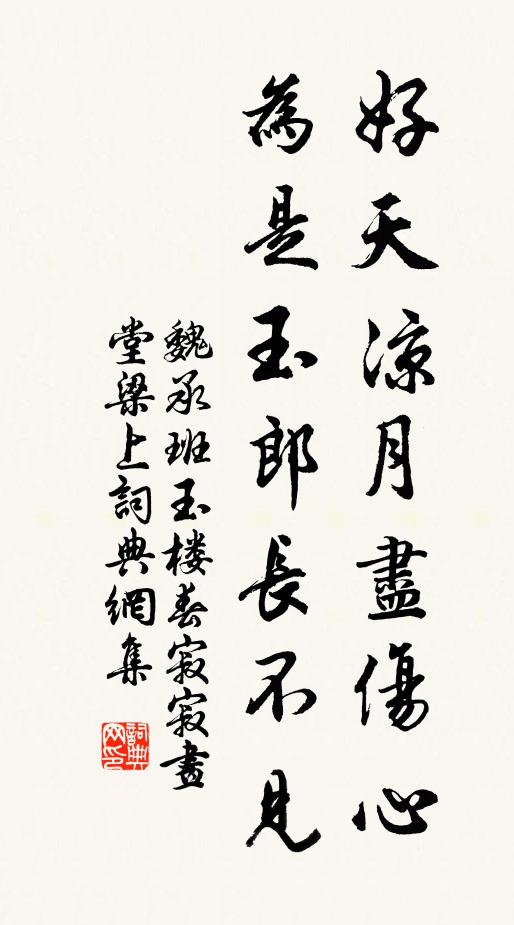 好天涼月盡傷心
為是玉郎長不見
魏承班玉楼春寂寂畫
堂梁上詞典網集
詞典
网印